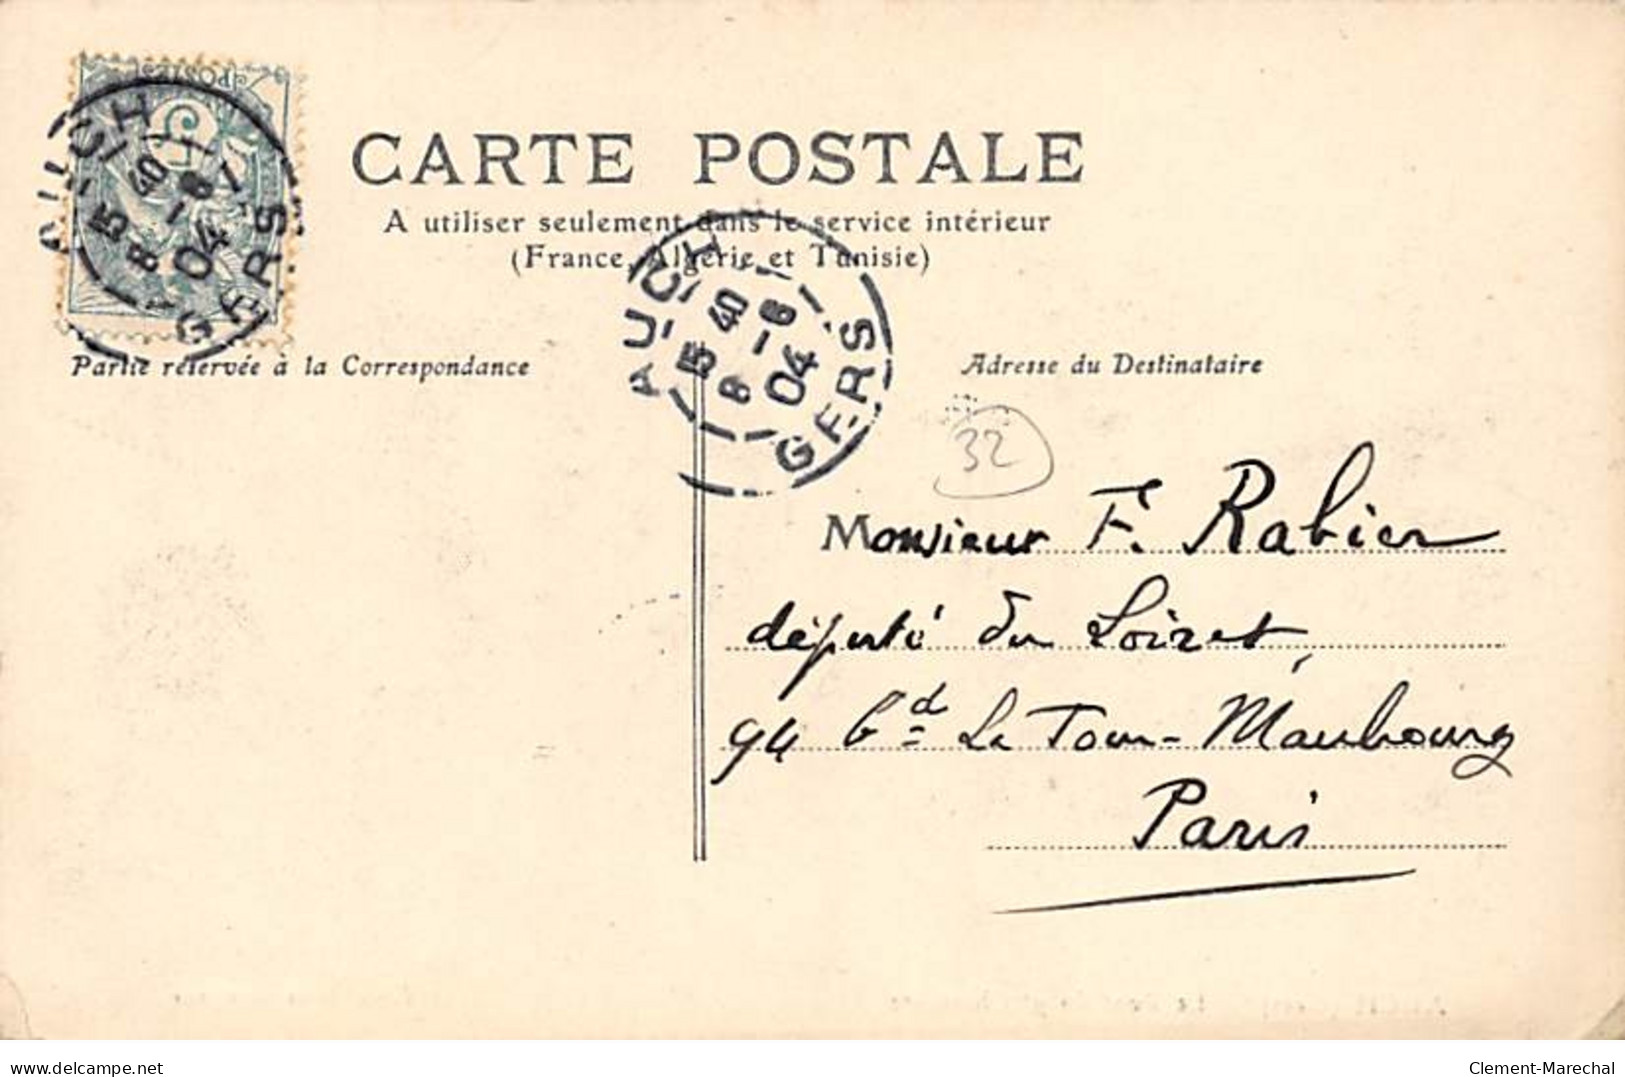 POSTES
5
AUCH
5 40
8 -6
04
GERS
CARTE POSTALE
A utiliser seulement dans le service intérieur
(France, Algérie et Tunisie)
AUCH
5 40
8 -6
04
GERS
Partie réservée à la Correspondance
Adresse du Destinataire
32
Monsieur F. Rabier
député du Loiret,
94 bd La Tour-Maubourg
Paris
delcampe.net
Clement-Marechal